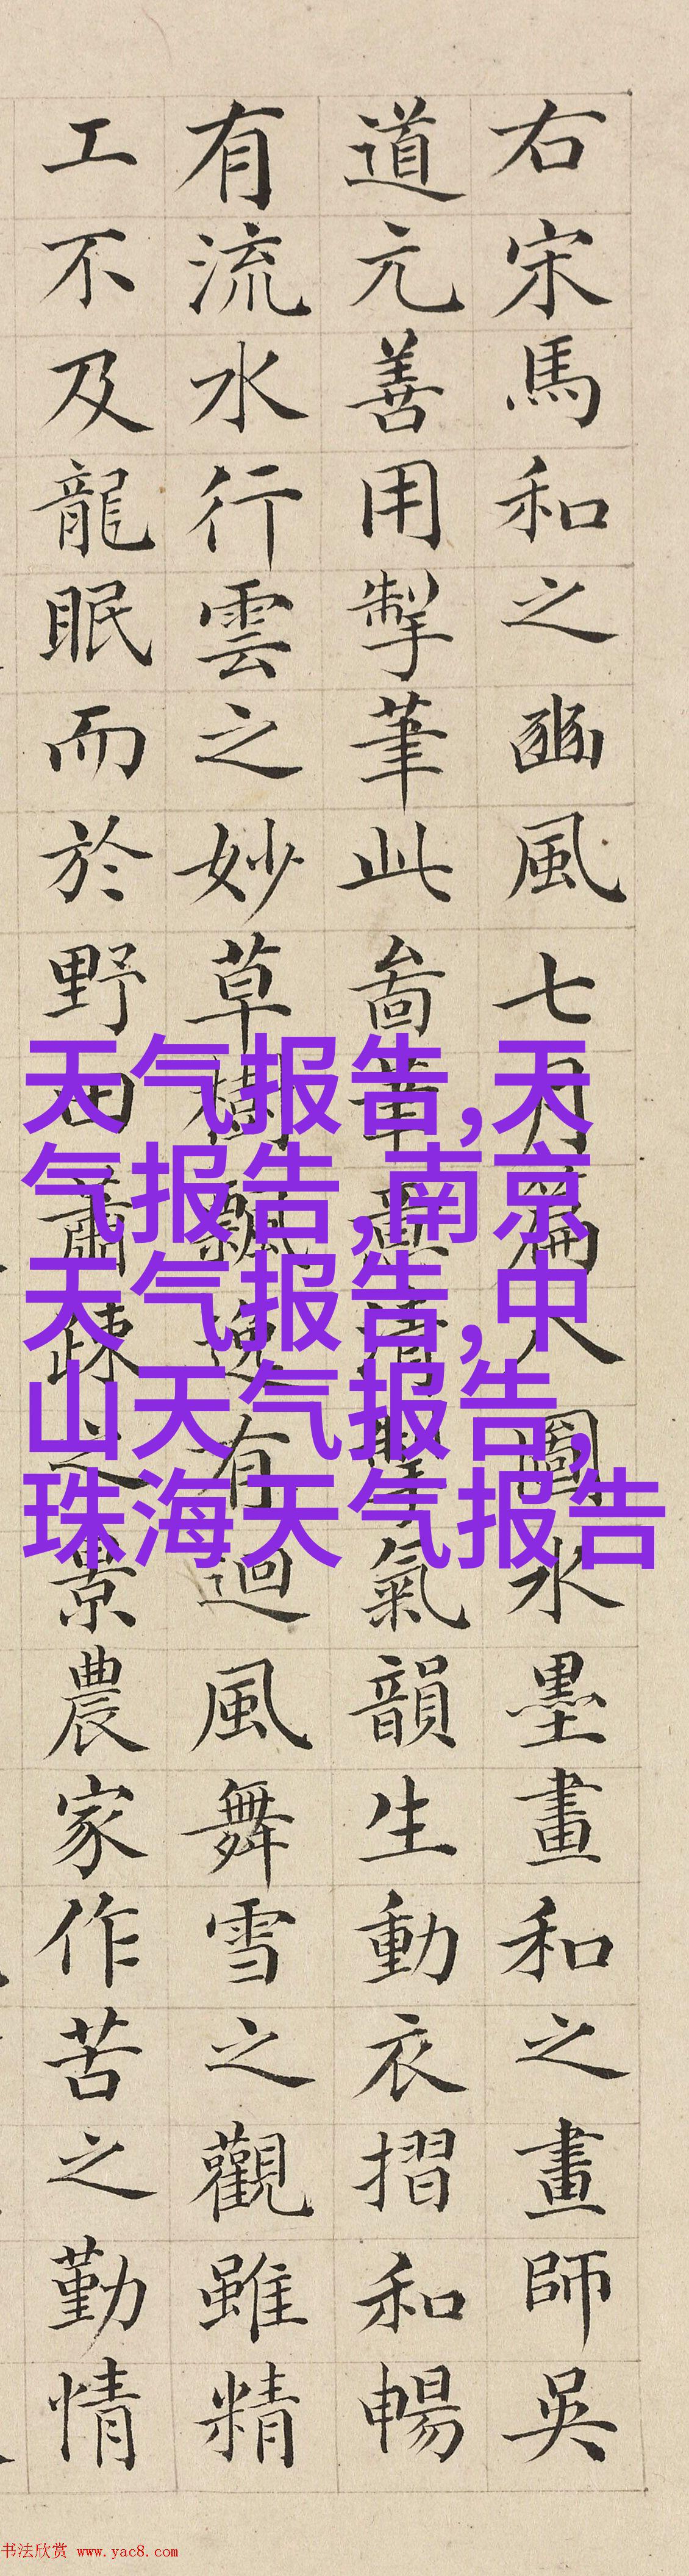 右宋馬和之豳風七月篇八圖水墨畫和之畫師吳
道元善用掣筆此啚筆意清氣韻生動衣摺和暢
有流水行雲之妙草樹飄逸有迴風舞雪之觀雖精
工不及龍眠而於野田蕭疎之景農家作苦之勤情
天气报告,天
气报告,南京
天气报告,中
山天气报告,
珠海天气报告
书法欣赏 www.yac8.com